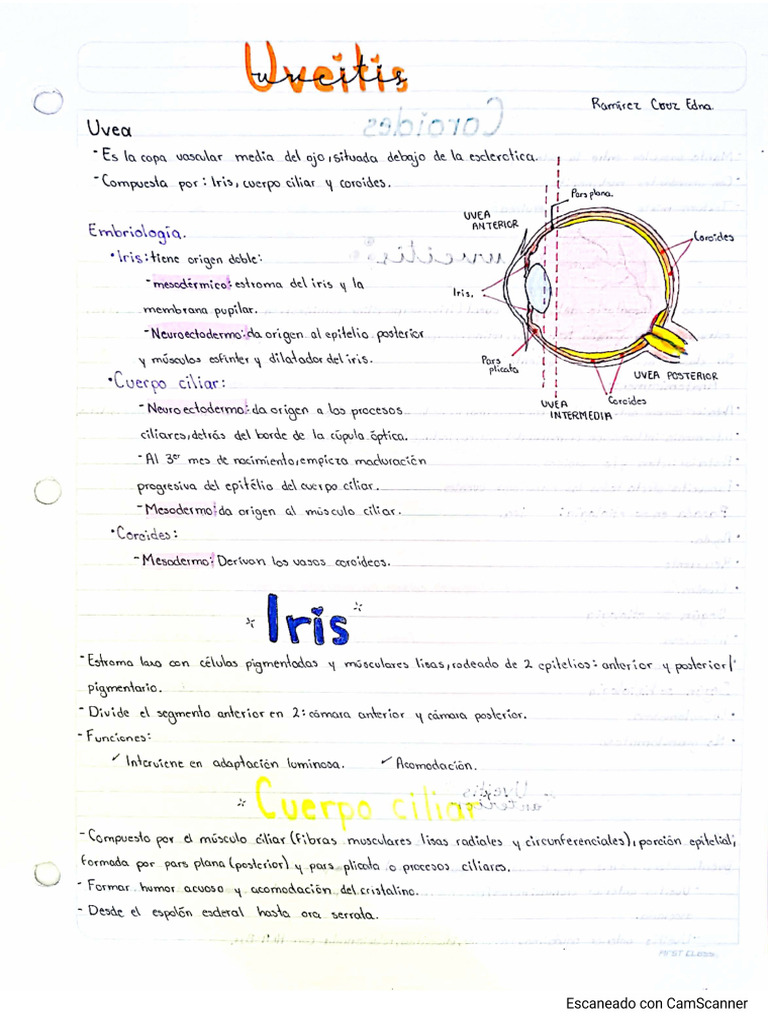 Uveitis
Ramírez Cruz Edna.
Uvea
- Es la copa vascular media del ojo, situada debajo de la esclerotica.
- Compuesta por: Iris, cuerpo ciliar y coroides.
Embriología.
• Iris: tiene origen doble:
- mesodérmico: estroma del iris y la
membrana pupilar.
- Neuroectodermo: da origen al epitelio posterior
y músculos esfinter y dilatador del iris.
• Cuerpo ciliar:
- Neuroectodermo: da origen a los procesos
ciliares, detrás del borde de la cúpula óptica.
- Al 3er mes de nacimiento, empieza maduración
progresiva del epitélio del cuerpo ciliar.
- Mesodermo: da origen al músculo ciliar.
• Coroides:
- Mesodermo: Derivan los vasos coroideos.
Pars plana.
UVEA
ANTERIOR
Coroides
Iris.
Pars
plicata
UVEA POSTERIOR
UVEA
INTERMEDIA
Coroides
Iris
- Estroma laxo con células pigmentadas y músculares lisas, rodeado de 2 epitelios: anterior y posterior/
pigmentario.
- Divide el segmento anterior en 2: cámara anterior y cámara posterior.
- Funciones:
✓ Interviene en adaptación luminosa. ✓ Acomodación.
Cuerpo ciliar
- Compuesto por el músculo ciliar (fibras musculares lisas radiales y circunferenciales), porción epitelial;
formada por pars plana (posterior) y pars plicata o procesos ciliares.
- Formar humor acuoso y acomodación del cristalino.
- Desde el espolón escleral hasta ora serrata.
Escaneado con CamScanner